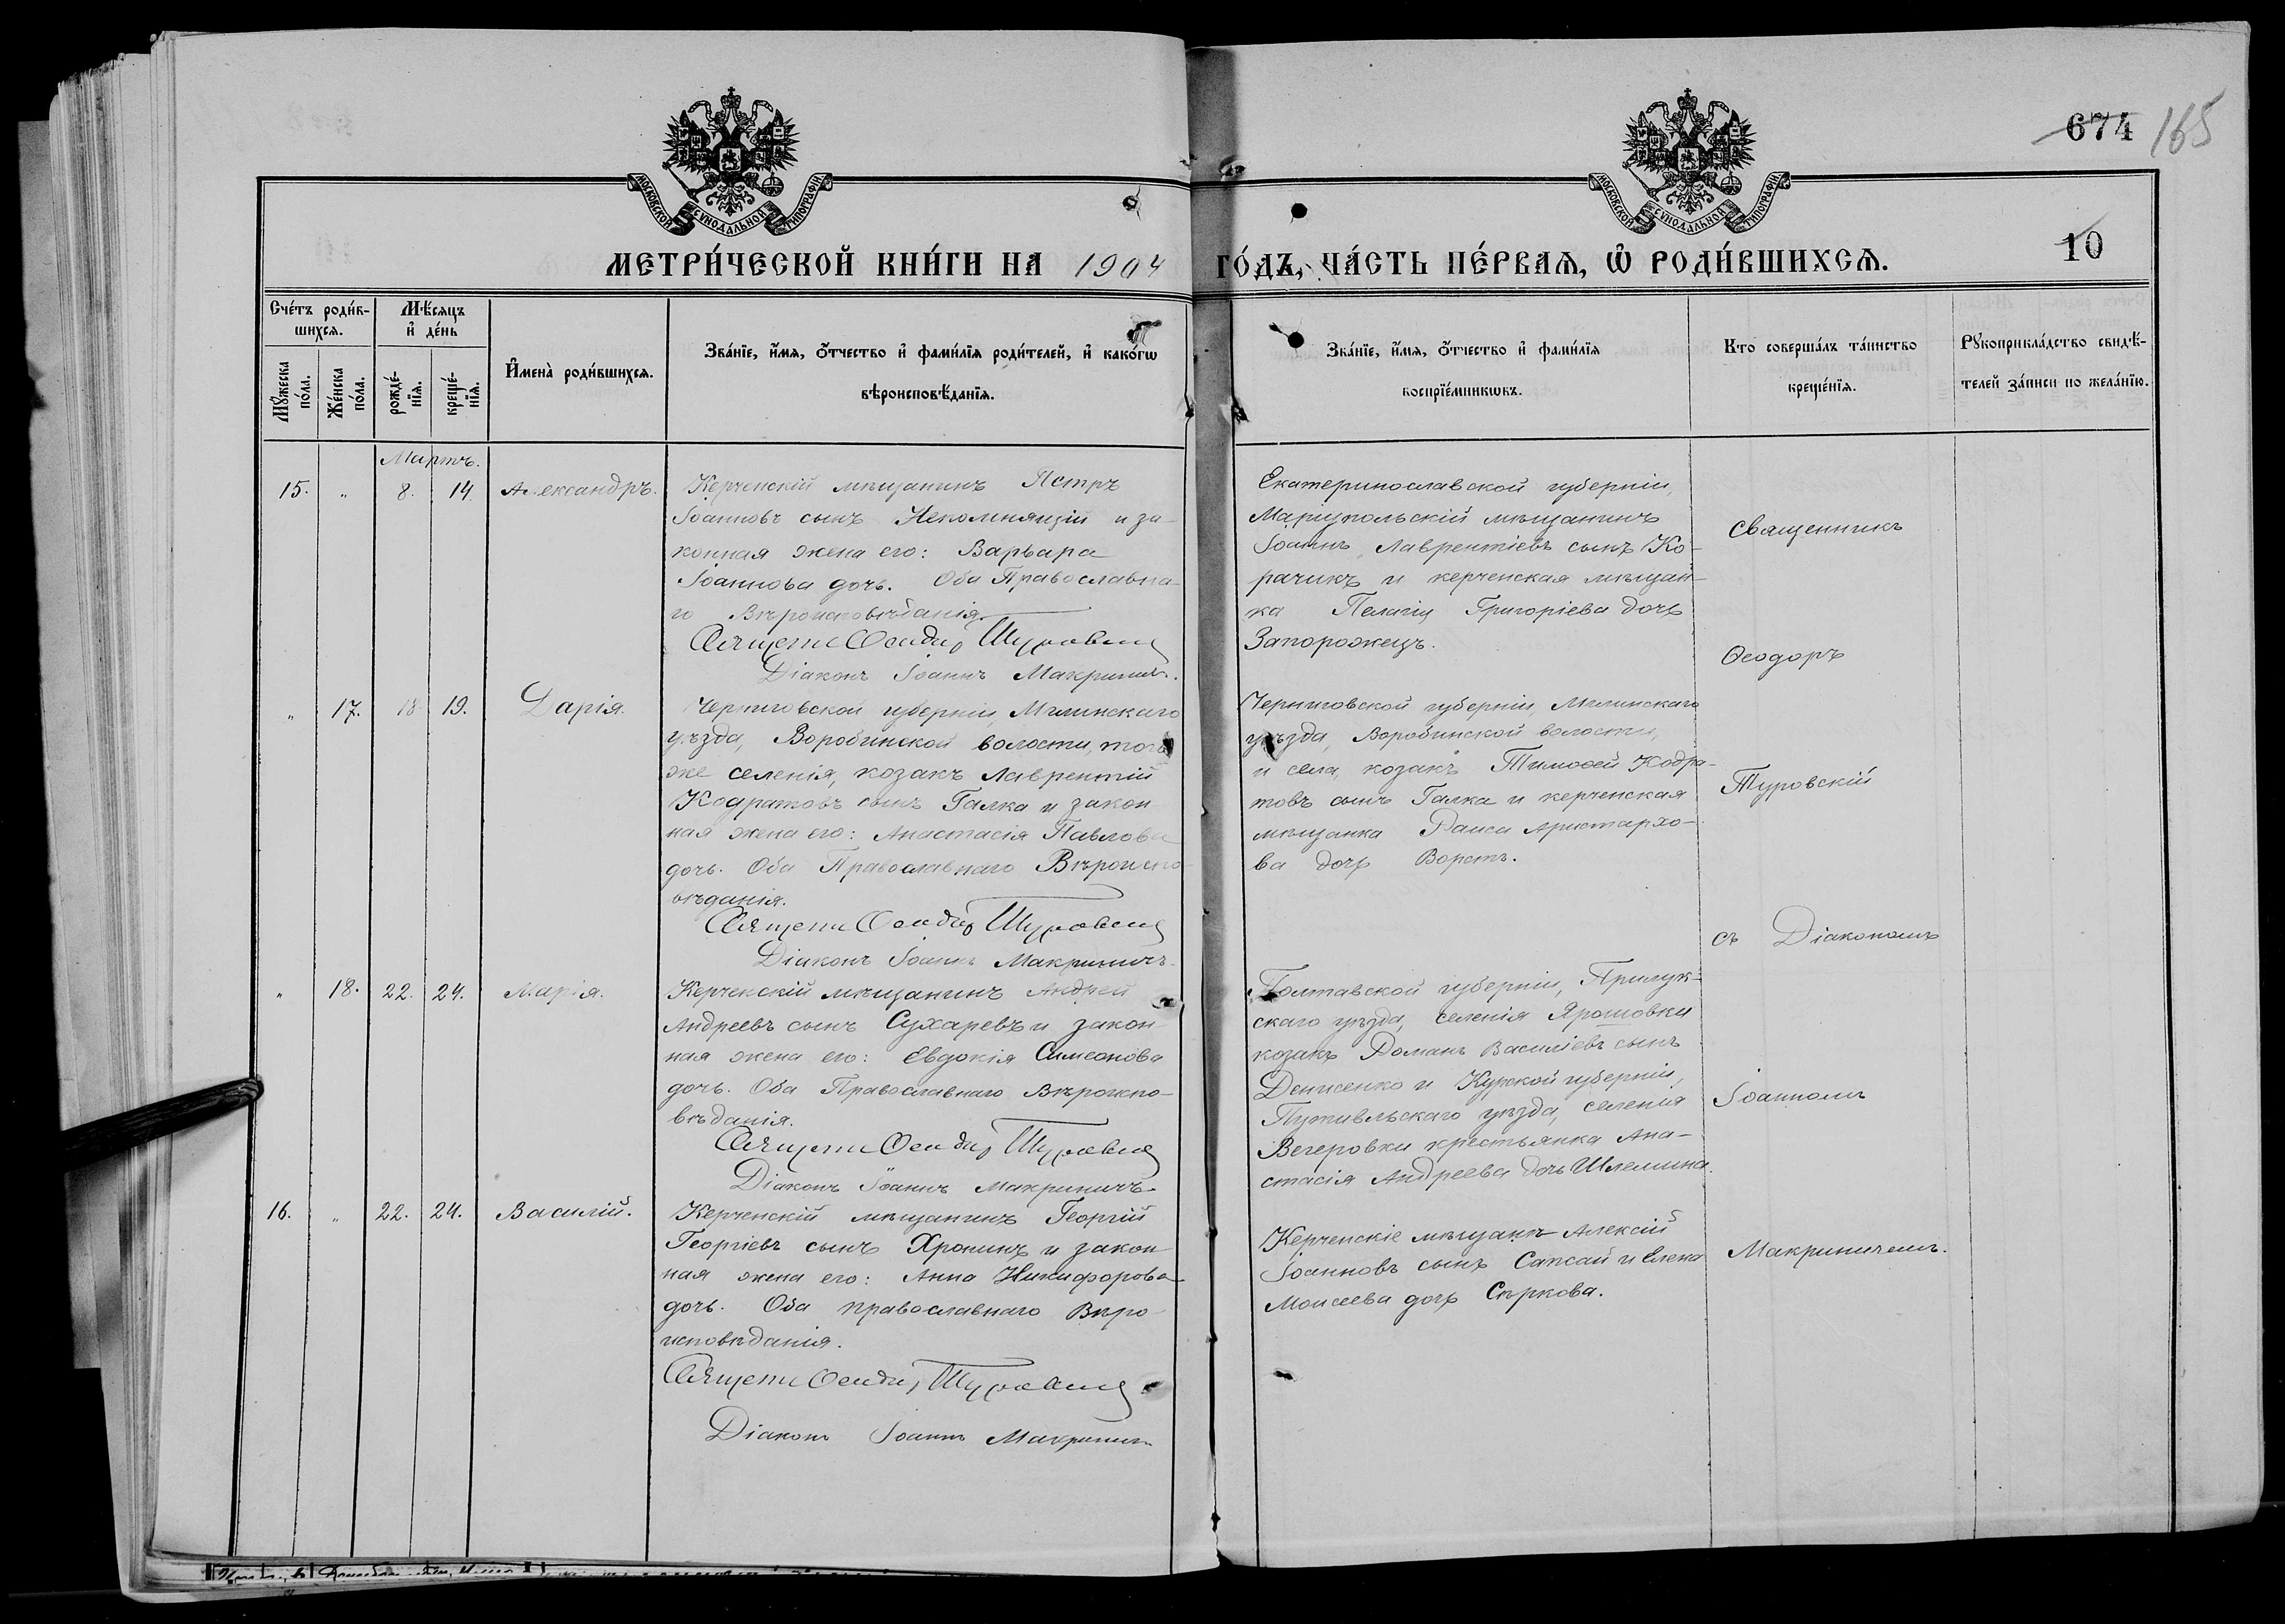 674 165
МОСКОВСКОЙ СѴНОДАЛЬНОЙ ТИПОГРАФІИ
МОСКОВСКОЙ СѴНОДАЛЬНОЙ ТИПОГРАФІИ
10
МЕТРИ́ЧЕСКОЙ КНИ́ГИ НА 1904 ГО́ДЪ, ЧА́СТЬ ПЕ́РВАЯ, Ѡ РОДИ́ВШИХСЯ.
Сче́тъ роди́в-
шихся.
Мѣ́сяцъ
и҆ де́нь
Мꙋ́жеска
по́ла.
Же́нска
по́ла.
рожде́-
нїя.
креще́-
нїя.
И҆мена̀ роди́вшихся.
Зва́нїе, и҆́мя, ѻ҆́тчество и҆ фами́лїя роди́телей, и҆ како́гѡ
вѣроисповѣ́данїя.
Зва́нїе, и҆́мя, ѻ҆́тчество и҆ фами́лїя
воспрїе́мникѡвъ.
Кто соверша́лъ та́инство
креще́нїя.
Рꙋкоприкла́дство свидѣ́-
телей за́писи по жела́нїю.
Мартъ.
15. " 8. 14. Александръ.
Керченскій мѣщанинъ Петръ
Іоанновъ сынъ Непомнящій и за-
конная жена его: Варвара
Іоаннова дочь. Оба Православна-
го Вѣроисповѣданія.
Священ Ѳеодор Туровскій
Діаконъ Іоаннъ Макриничъ.
Екатеринославской губерніи,
Маріупольскій мѣщанинъ
Іоаннъ Лаврентіевъ сынъ Ко-
рачикъ и керченская мѣщан-
ка Пелагія Григоріева дочь
Запорожецъ.
Священникъ
Ѳеодоръ
" 17. 18 19. Дарія.
Черниговской губерніи, Мглинскаго
уѣзда, Воробинской волости, того
же селенія, козакъ Лаврентій
Кодратовъ сынъ Галка и закон
ная жена его: Анастасія Павлова
дочь. Оба Православнаго Вѣроиспо-
вѣданія.
Священ Ѳеодор Туровскій
Діаконъ Іоаннъ Макриничъ.
Черниговской губерніи, Мглинскаго
уѣзда, Воробинской волости,
и села, козакъ Тимоѳей Кодра-
товъ сынъ Галка и керченская
мѣщанка Раиса Аристархо-
ва дочь Ворстъ.
Туровскій
съ Діакономъ
" 18. 22. 24. Марія.
Керченскій мѣщанинъ Андрей
Андреевъ сынъ Сухаревъ и закон-
ная жена его: Евдокія Симеонова
дочь. Оба Православнаго Вѣроиспо-
вѣданія.
Священ Ѳеодор Туровскій
Діаконъ Іоаннъ Макриничъ
Полтавской губерніи, Прилук-
скаго уѣзда, селенія Ярошовки
козакъ Романъ Василіевъ сынъ
Денисенко и Курской губерніи,
Путивльскаго уѣзда, селенія
Вегеровки крестьянка Ана-
стасія Андреева дочь Шлемина.
Іоанномъ
16. " 22. 24. Василій.
Керченскій мѣщанинъ Георгій
Георгіевъ сынъ Хронинъ и закон
ная жена его: Анна Никифорова
дочь. Оба православнаго Вѣро
исповѣданія.
Священ Ѳеодор Туровскій
Діаконъ Іоаннъ Макриничъ
Керченскіе мѣщане Алексій
Іоанновъ сынъ Сапсай и Елена
Моисеева дочь Сѣркова.
Макриничемъ.